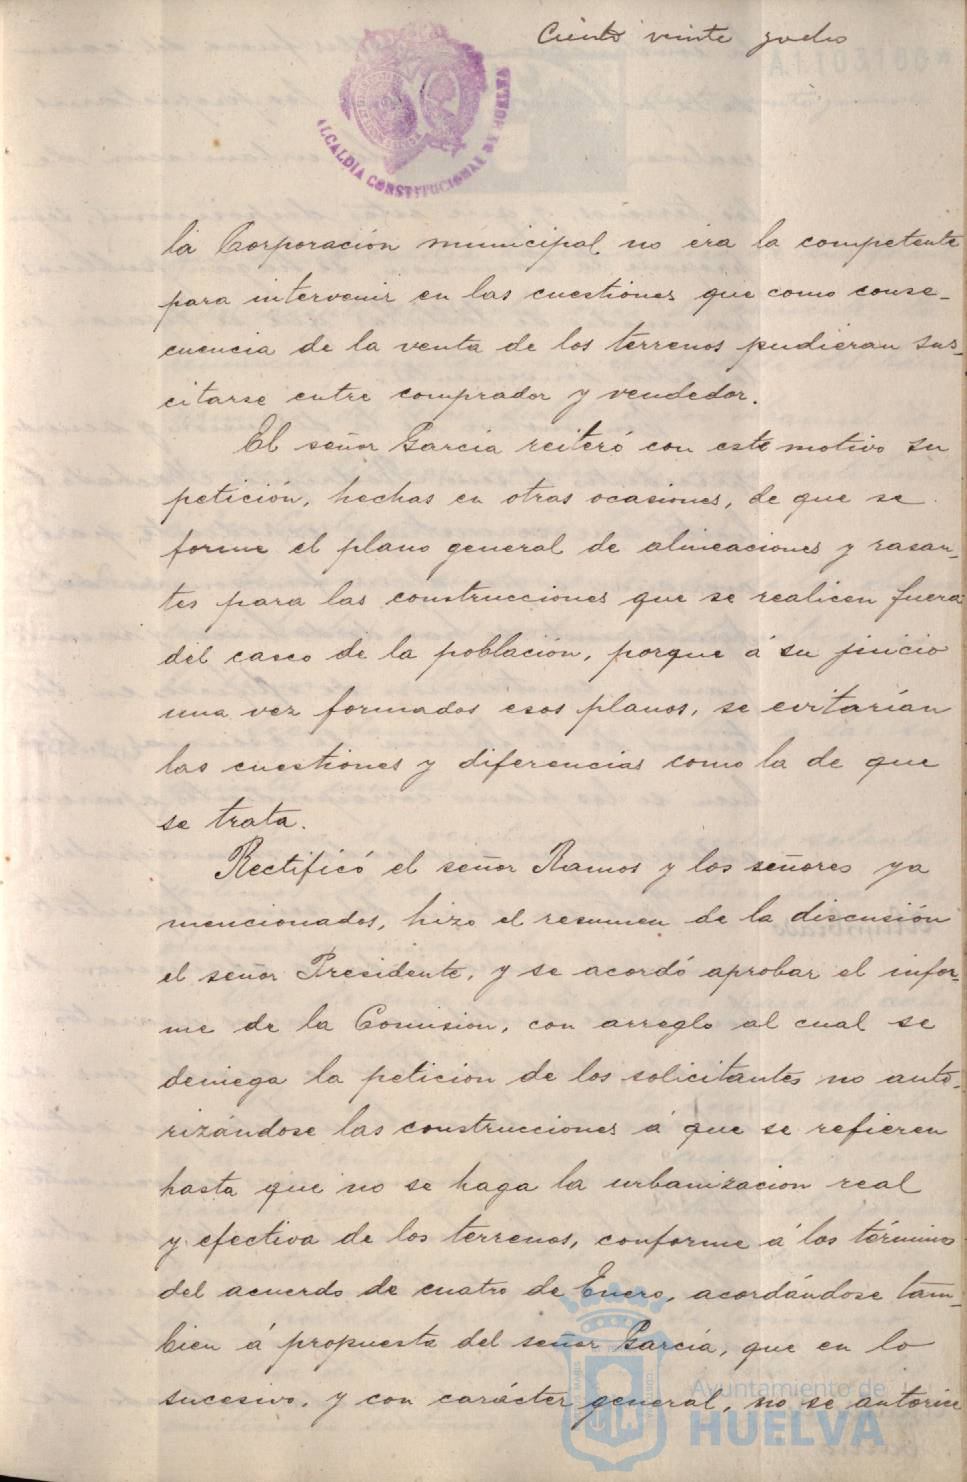 Ciento veinte y ocho
ALCALDIA CONSTITUCIONAL DE HUELVA
la Corporación municipal no era la competente
para intervenir en las cuestiones que como conse-
cuencia de la venta de los terrenos pudieran sus-
citarse entre comprador y vendedor.
El señor García reiteró con este motivo su
petición, hechas en otras ocasiones, de que se
forme el plano general de alineaciones y rasan-
tes para las construcciones que se realicen fuera
del casco de la población, porque á su juicio
una vez formados esos planos, se evitarían
las cuestiones y diferencias como la de que
se trata.
Rectificó el señor Ramos y los señores ya
mencionados, hizo el resumen de la discusión
el señor Presidente, y se acordó aprobar el infor-
me de la Comision, con arreglo al cual se
deniega la peticion de los solicitantes no auto-
rizándose las construcciones á que se refieren
hasta que no se haga la urbanizacion real
y efectiva de los terrenos, conforme á los términos
del acuerdo de cuatro de Enero, acordándose tam-
bien á propuesta del señor García, que en lo
sucesivo, y con carácter general, no se autorice
Ayuntamiento de
HUELVA